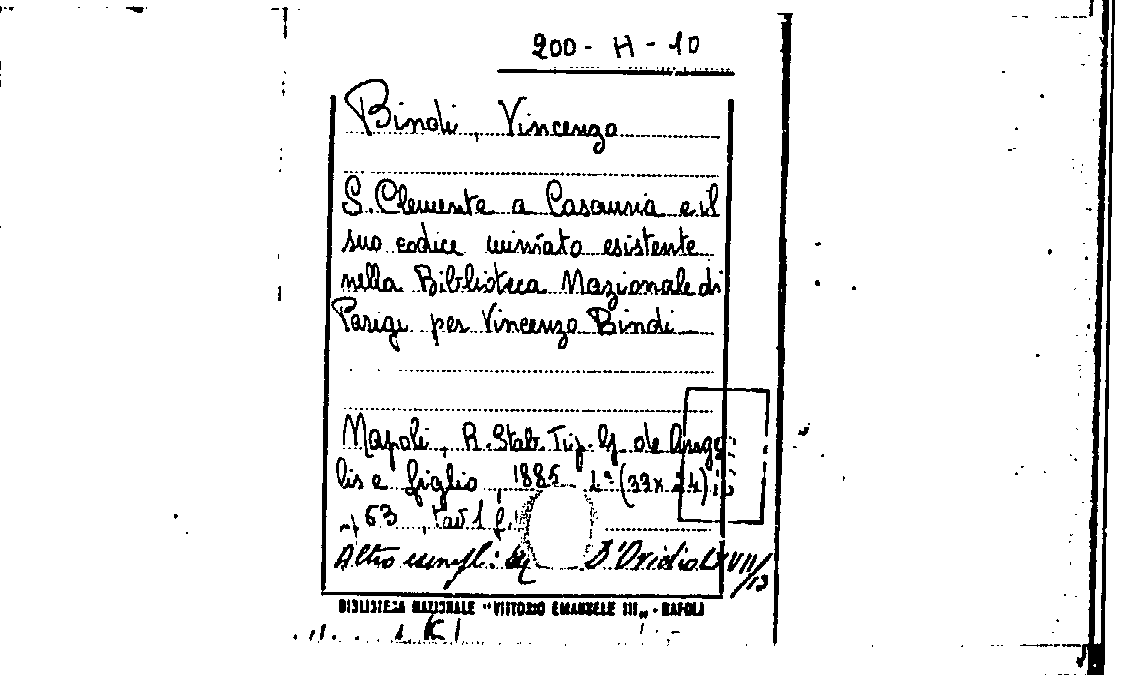 200 - H - 10
Bindi, Vincenzo
S. Clemente a Casauria e il
suo codice miniato esistente
nella Biblioteca Nazionale di
Parigi per Vincenzo Bindi
Napoli, R. Stab. Tip. G. de Ange
lis e figlio, 1885 4° (33x24)
p 63, tav 1 f.
Altro esempl: D'Ovidio LXVII/
/13
BIBLIOTECA NAZIONALE "VITTORIO EMANUELE III" - NAPOLI